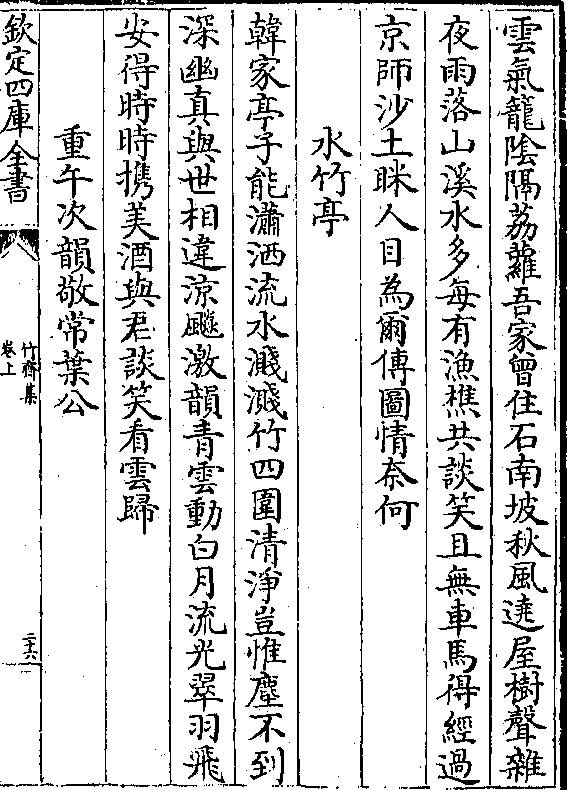 雲氣籠陰隔荔蘿吾家曾住石南坡秋風遶屋樹聲雜
夜雨落山溪水多每有漁樵共談笑且無車馬得經過
京師沙土眯人目為爾傳圖情奈何
水竹亭
韓家亭子能瀟洒流水濺濺竹四圍清淨豈惟塵不到
深幽真與世相違涼飈激韻青雲動白月流光翠羽飛
安得時時携美酒與君談笑看雲歸
重午次韻敬常葉公
欽定四庫全書
竹齋集
卷上
二十六